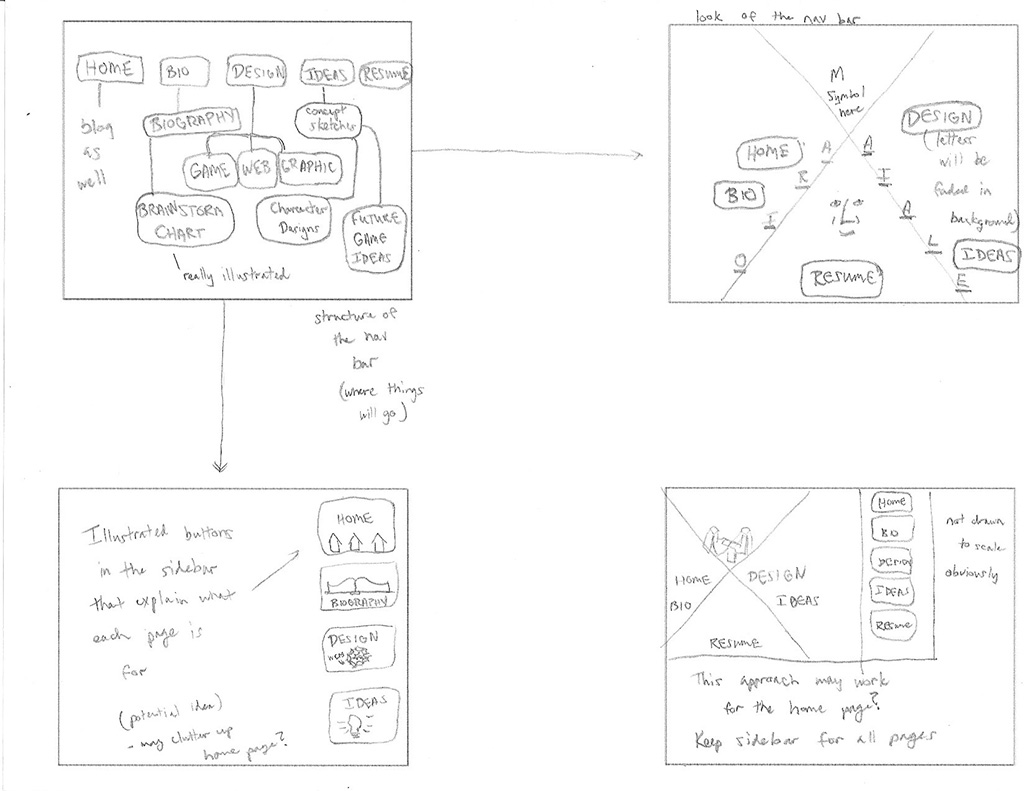 look of the nav bar
HOME
BIO
DESIGN
IDEAS
RESUME
blog
as
well
BIOGRAPHY
concept
sketches
GAME
WEB
GRAPHIC
BRAINSTORM
CHART
Character
Designs
FUTURE
GAME
IDEAS
really illustrated
structure of
the nav
bar
(where things
will go)
M
symbol
here
DESIGN
(letters
will be
faded in
background)
HOME
BIO
IDEAS
RESUME
A
R
I
O
A
I
A
L
E
Illustrated buttons
in the sidebar
that explain what
each page is
for
(potential idea)
- may clutter up
home page?
HOME
BIOGRAPHY
DESIGN
IDEAS
HOME
BIO
DESIGN
IDEAS
RESUME
Home
BIO
DESIGN
IDEAS
Resume
not drawn
to scale
obviously
This approach may work
for the home page?
Keep sidebar for all pages